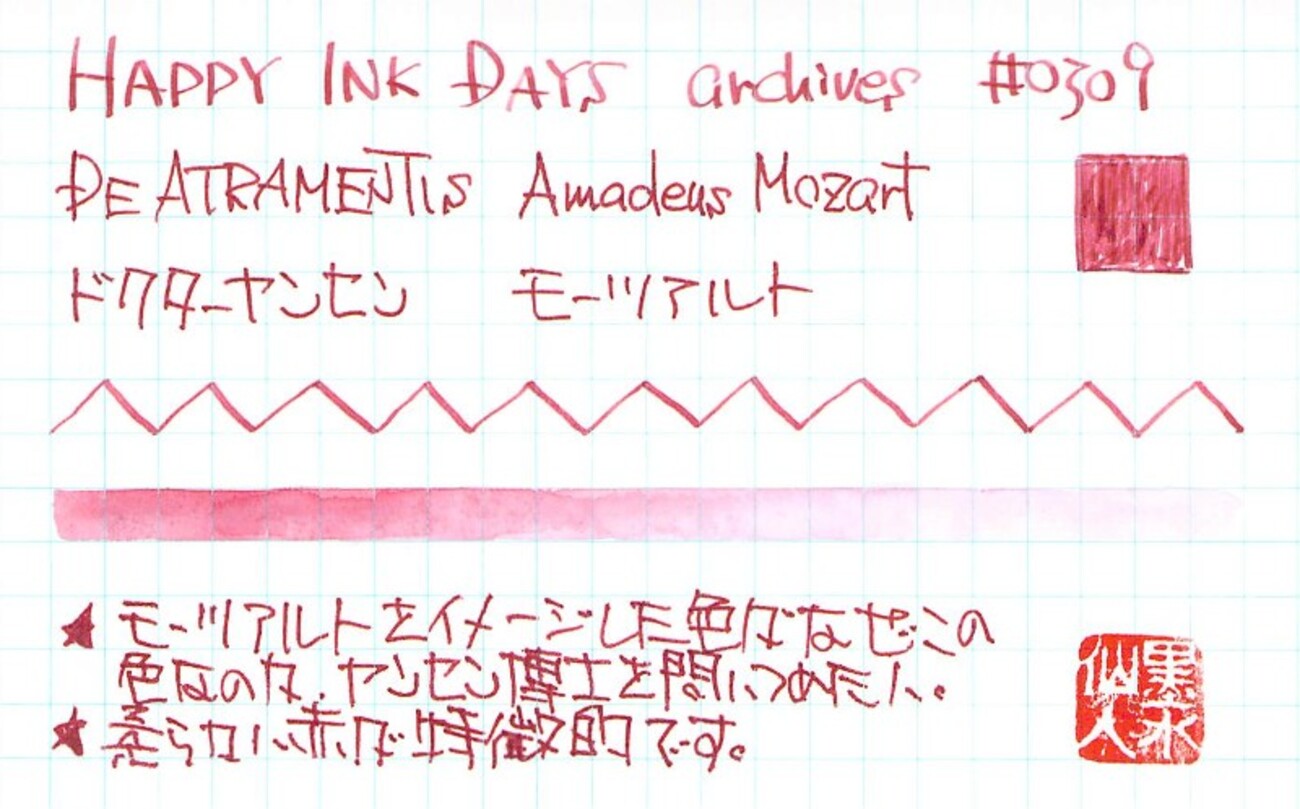 HAPPY INK DAYS archives #0309
DE ATRAMENTIS Amadeus Mozart
ドクターヤンセン モーツアルト
★ モーツアルトをイメージした色がなぜこの
色なのか、ヤンセン博士を問いつめたい。
★ 柔らかい赤が特徴的です。
仙人 墨水